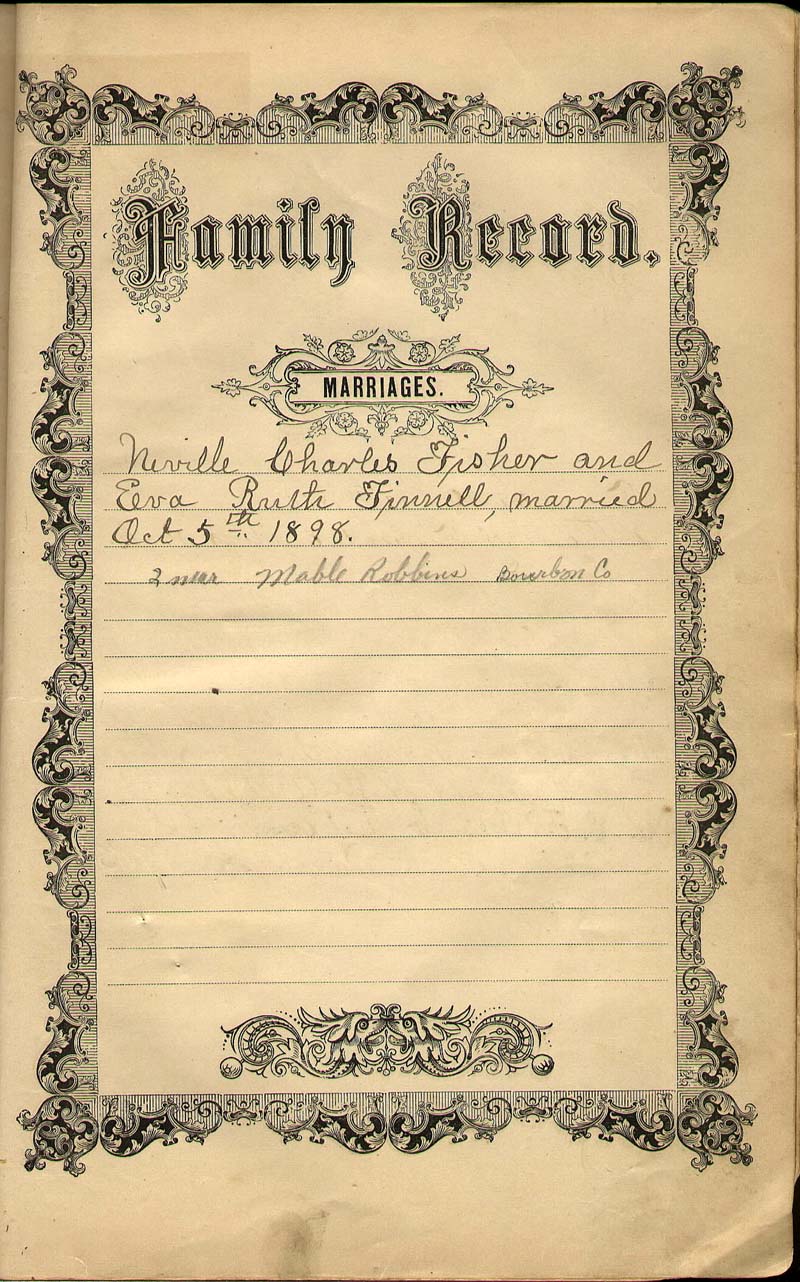 Family Record.
MARRIAGES.
Neville Charles Fisher and
Eva Ruth Finnell, married
Oct 5th 1898.
2 mar Mable Robbins Bourbon Co